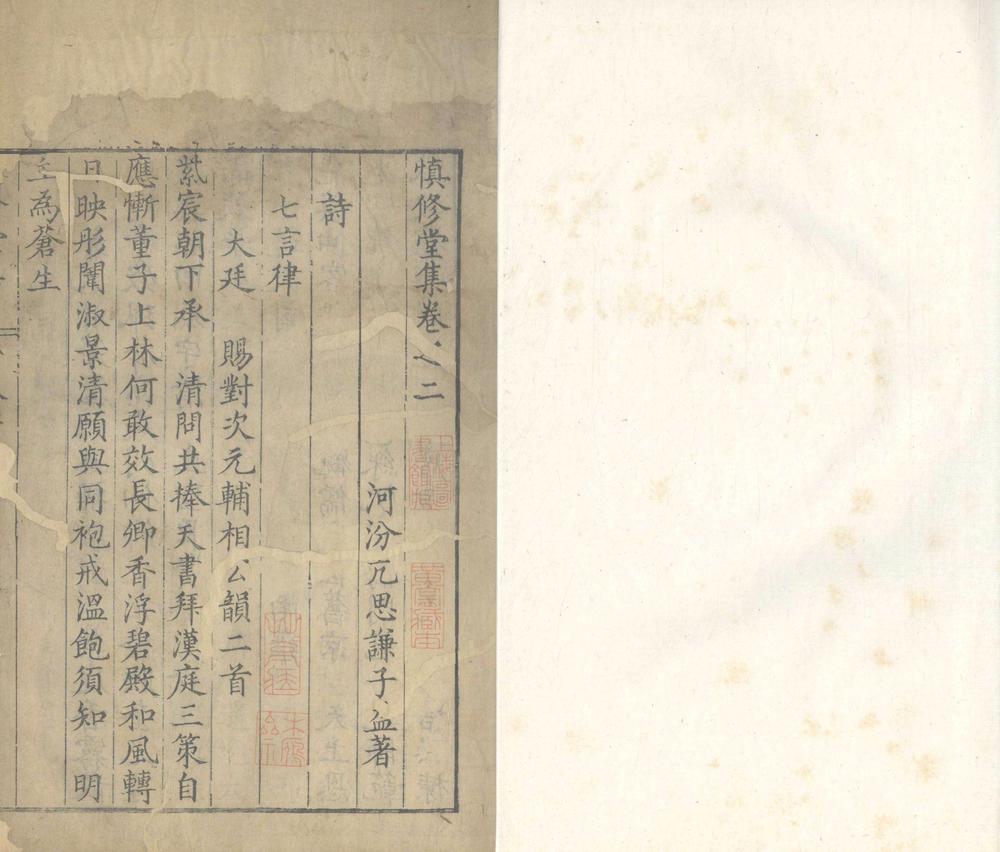 慎修堂集卷之二
河汾亢思謙子益著
詩
七言律
大廷　賜對次元輔相公韻二首
紫宸朝下承　清問共捧天書拜漢庭三策自
應慚董子上林何敢效長卿香浮碧殿和風轉
日映彤闈淑景清願與同袍戒溫飽須知　明
主為蒼生